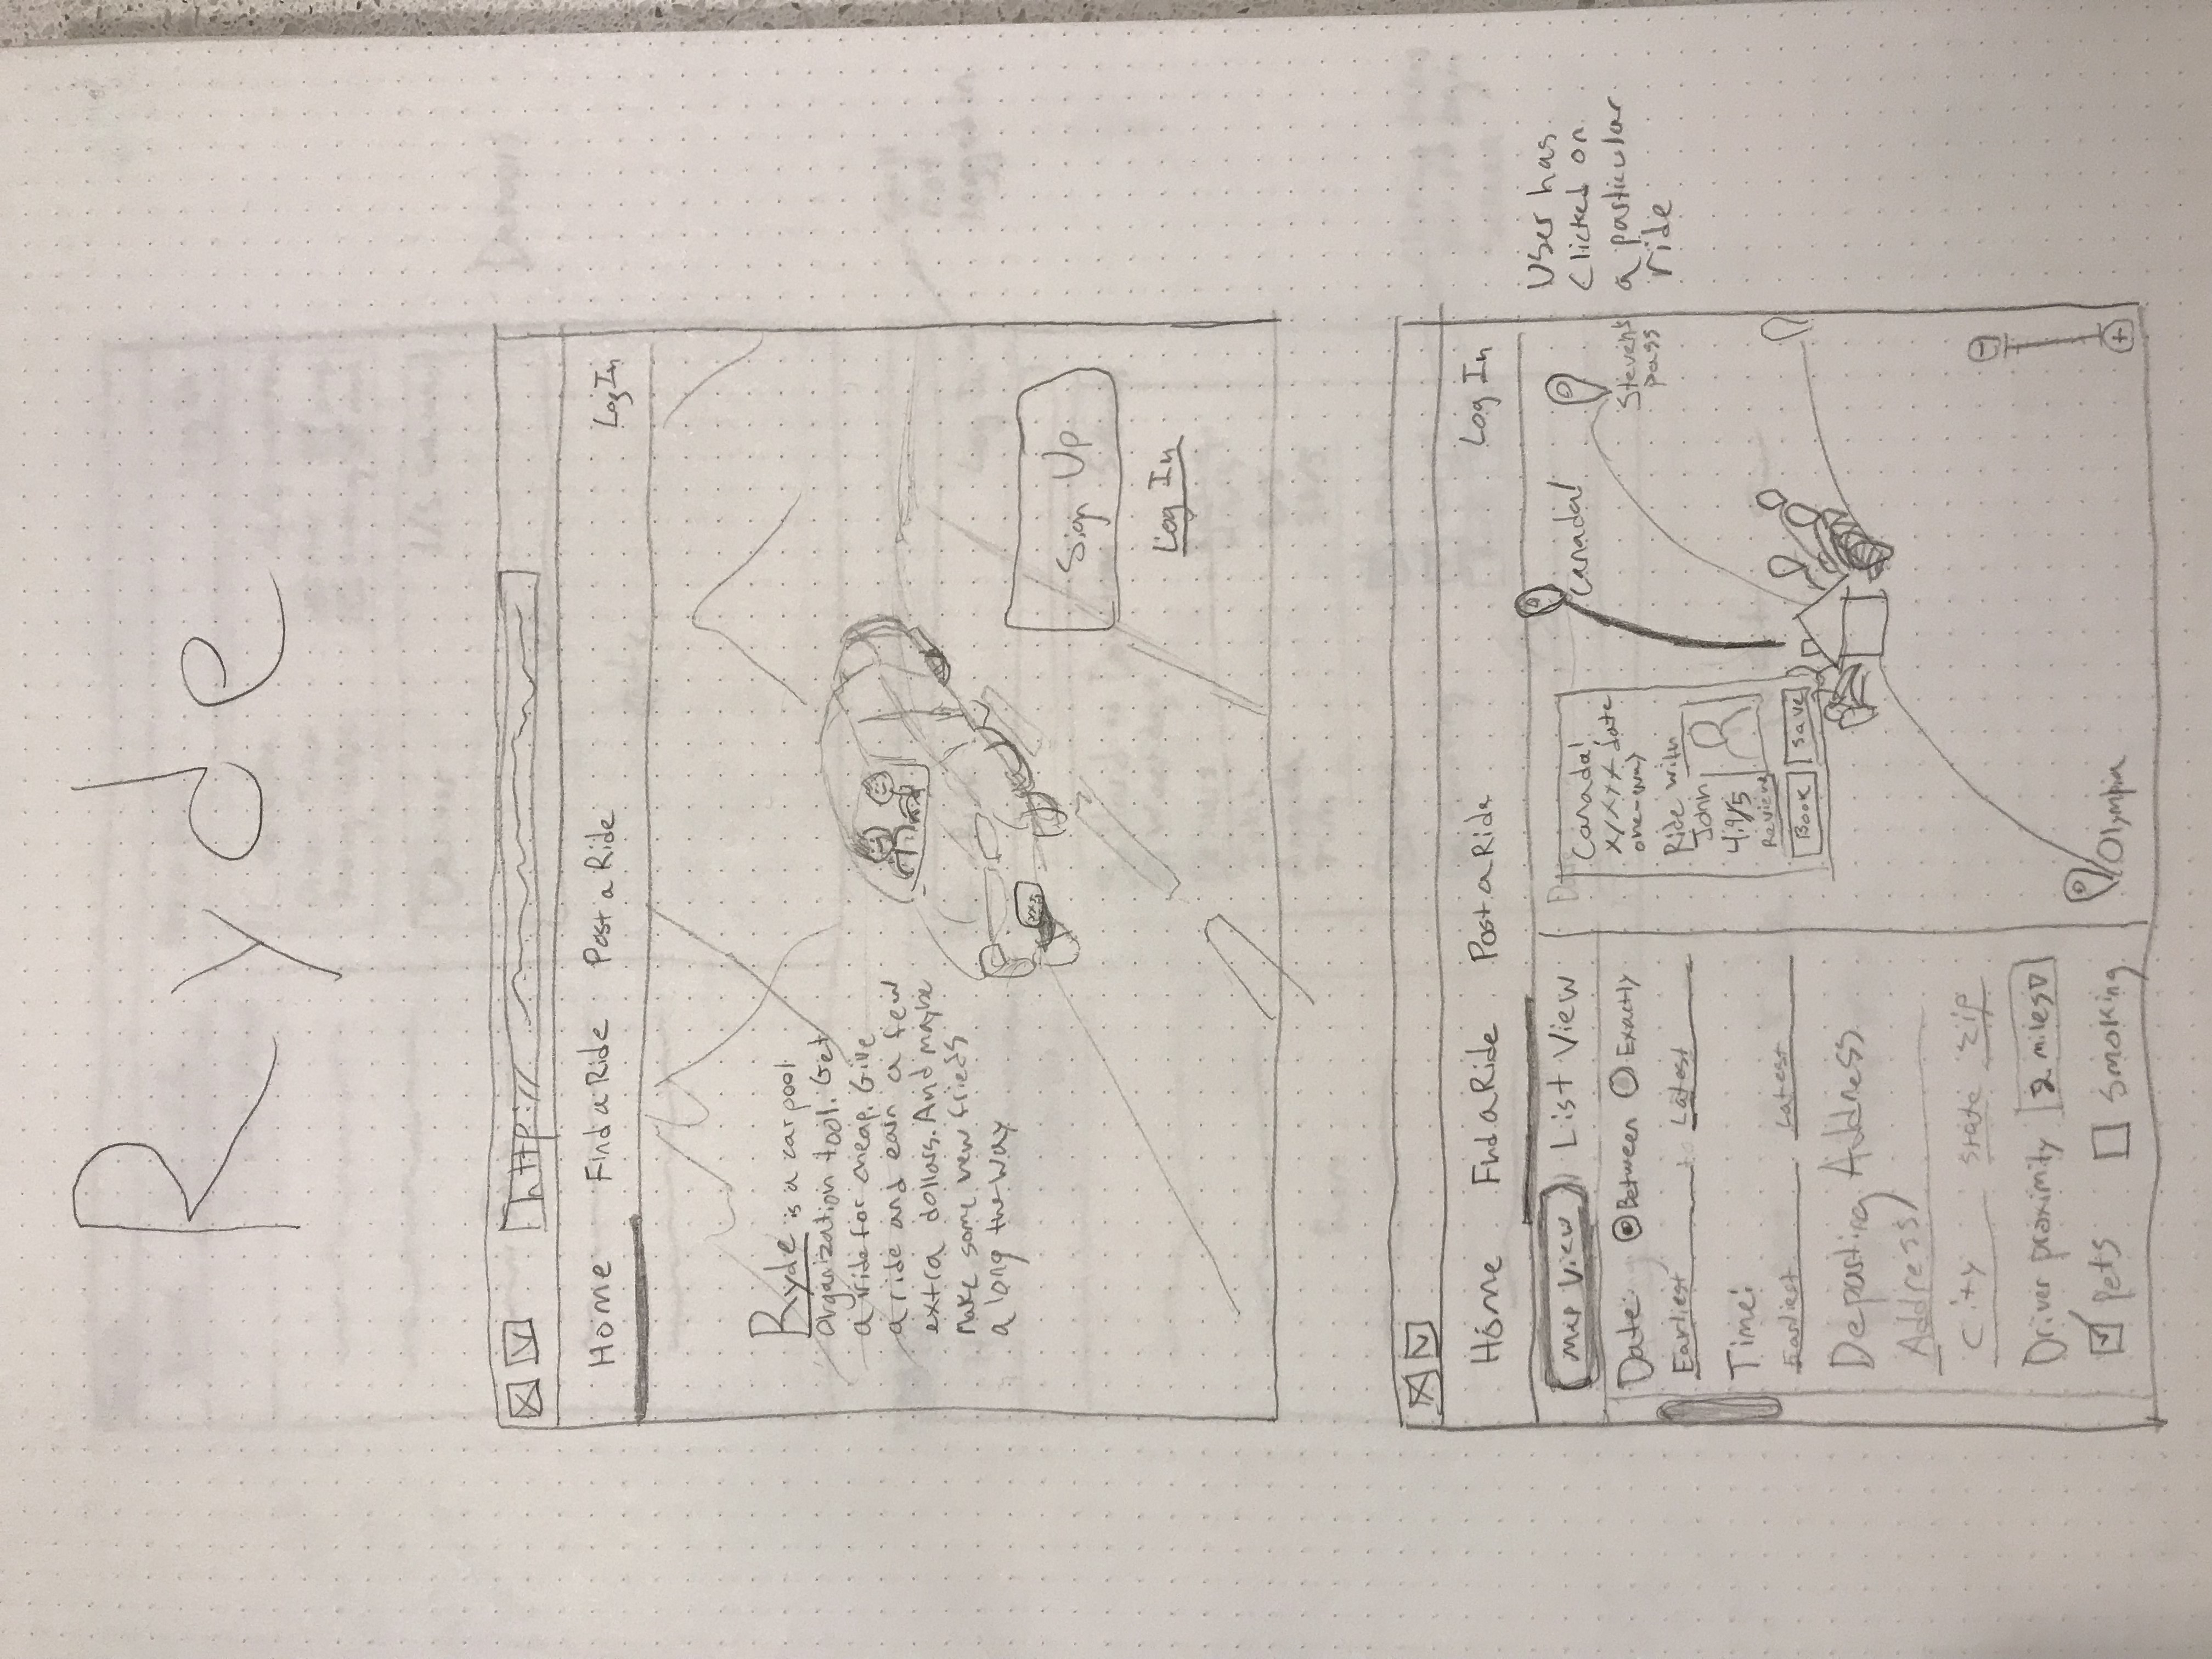 Ryde
http://
Home Find a Ride Post a Ride Log In
Ryde is a carpool
organization tool. Get
a ride for cheap. Give
a ride and earn a few
extra dollars. And maybe
make some new frieds
a long the way
Sign Up
Log In
Home Find a Ride Post a Ride Log In
Map View List View
Date: Between Exactly
Earliest to Latest
Time:
Earliest Latest
Departing Address
Address
City State Zip
Driver proximity 2 miles
Pets Smoking
Canada!
x/x x x date
one-way
Ride with
John
4.9/5
Reviews
Book Save
Canada!
Stevens
pass
Olympia
User has
clicked on
a particular
ride